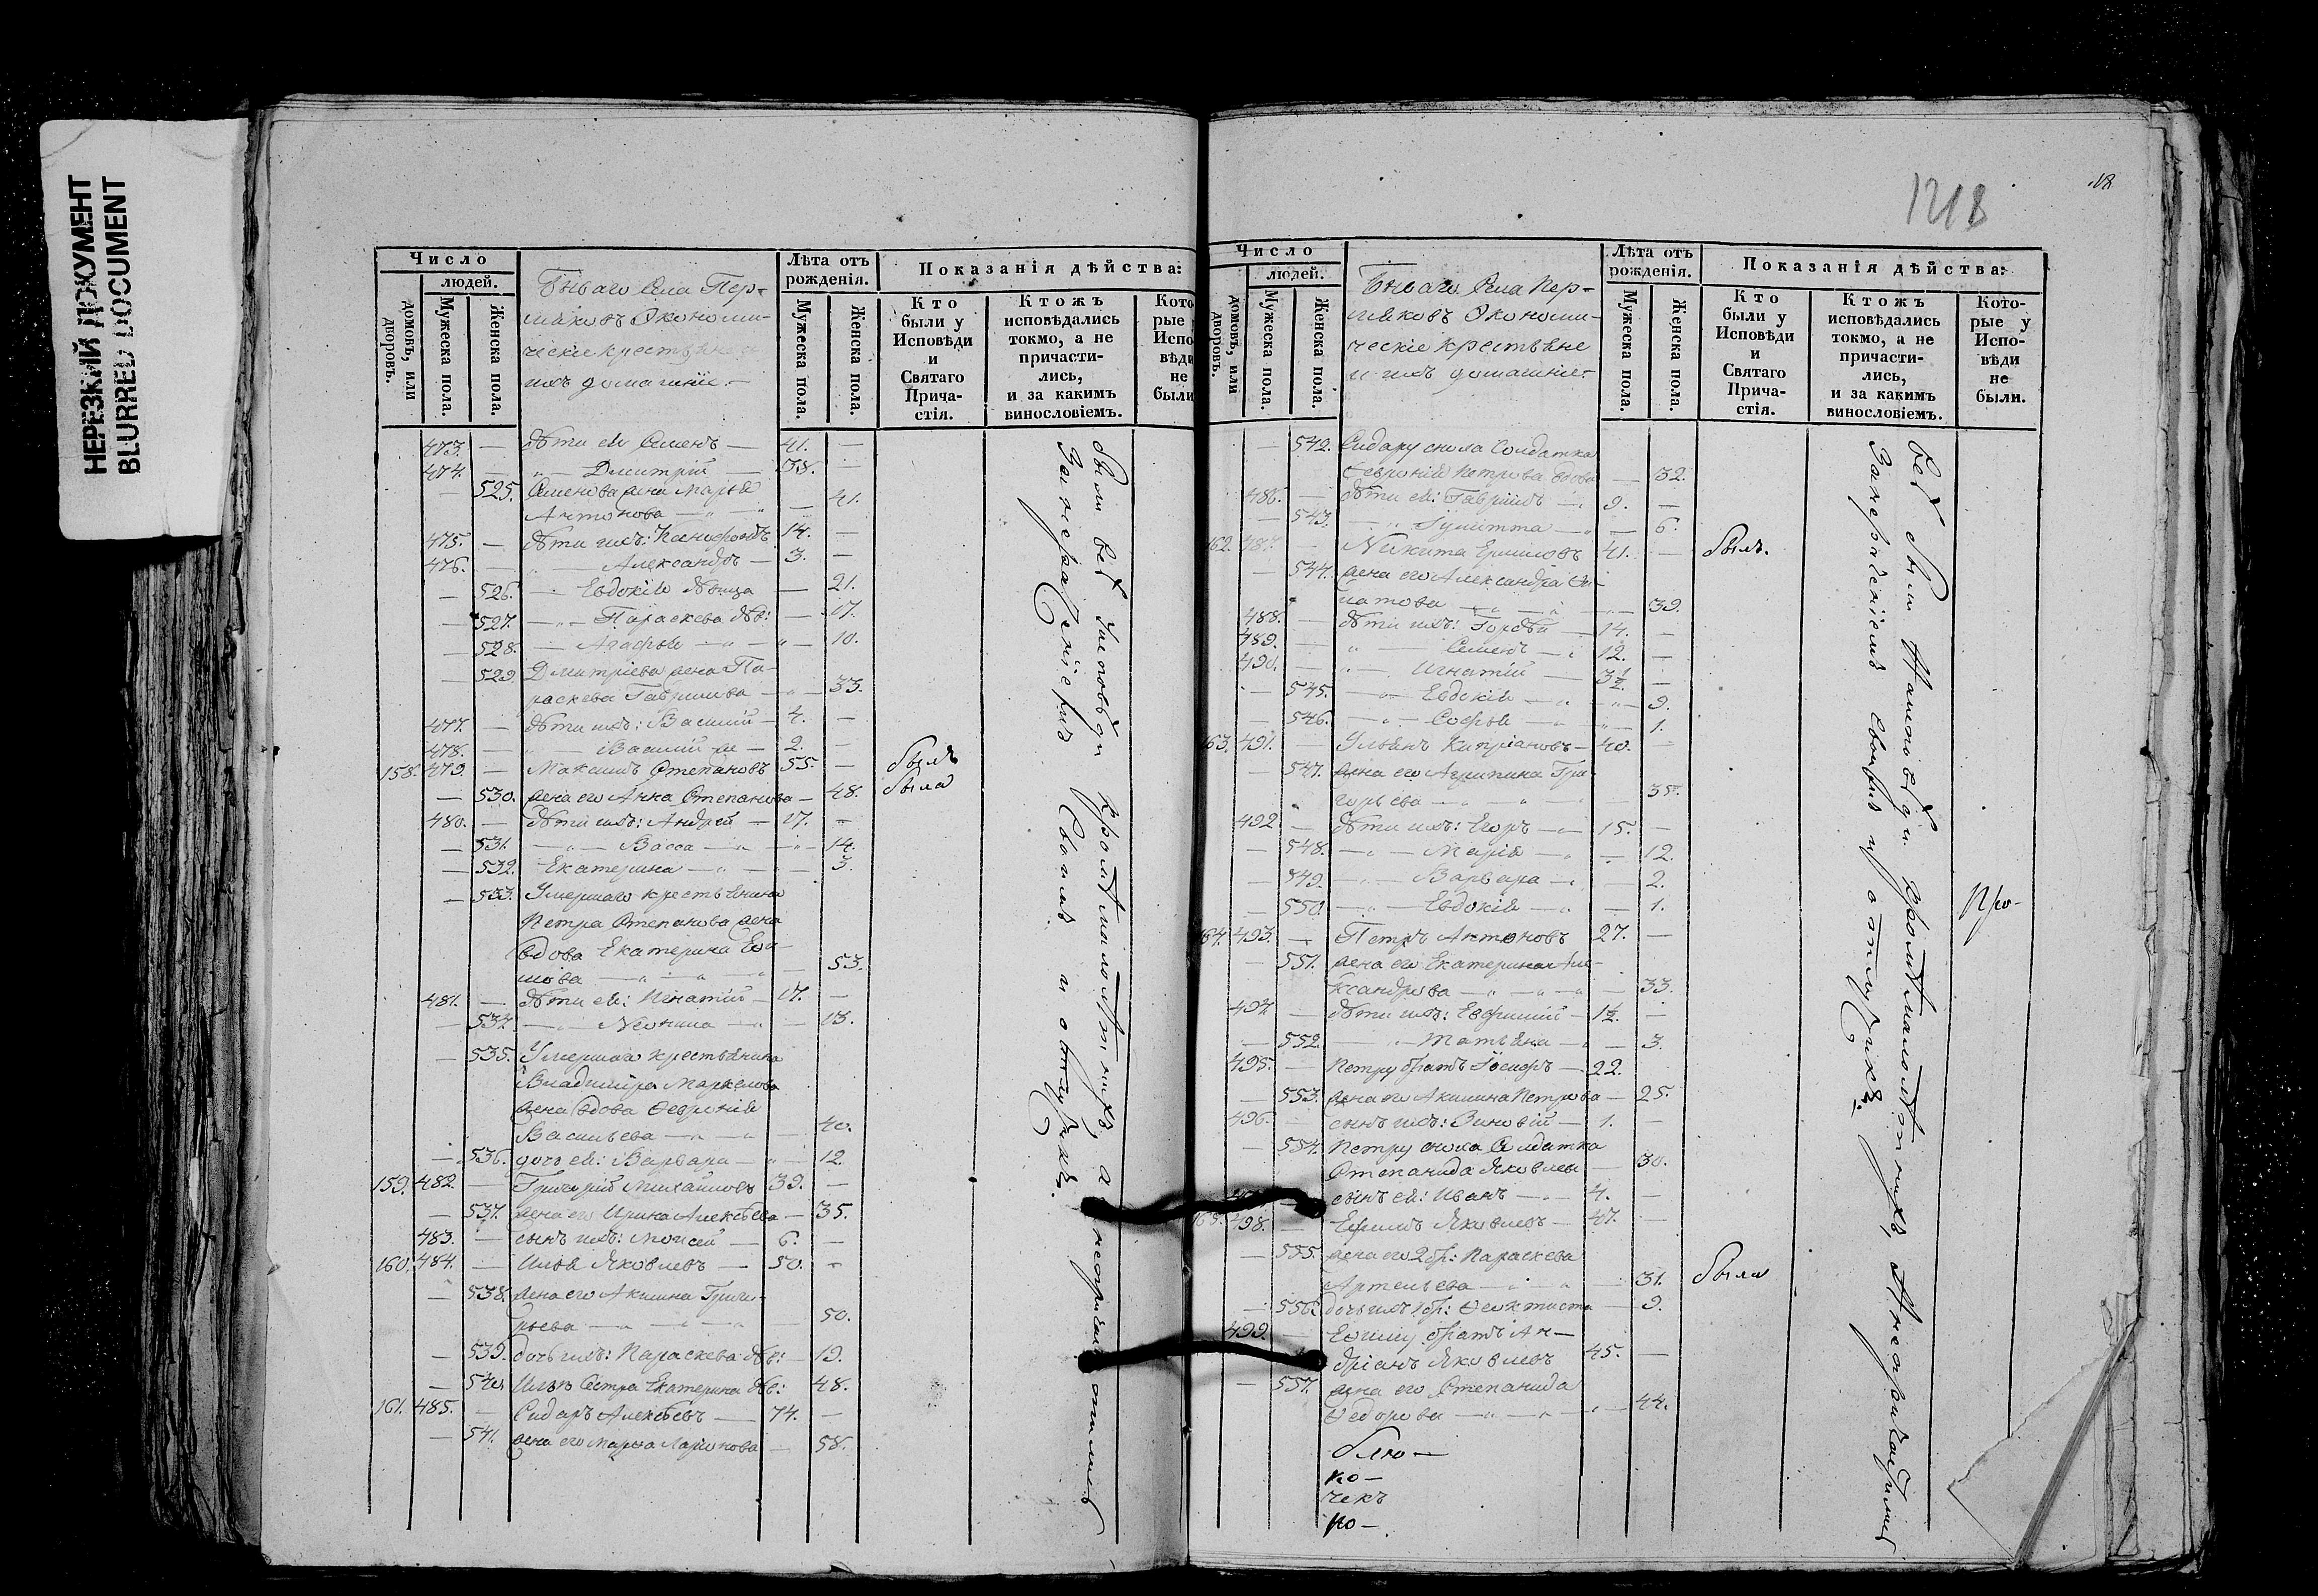 НЕРЕЗКИЙ ДОКУМЕНТ
BLURRED DOCUMENT
Число
людей.
домовъ, или дворовъ.
Мужеска пола.
Женска пола.
Бывшаго Села Пер-
шаковъ Экономи-
ческіе крестьяне
ихъ домашніе.
Лѣта отъ рожденія.
Мужеска пола.
Женска пола.
Показанія дѣйства:
Кто были у Исповѣди и Святаго Прича- стія.
Ктожъ исповѣдались токмо, а не причасти- лись, и за какимъ винословіемъ.
Кото рые Испо вѣди не были
473. — дѣти ея Семенъ — 41. —
474. — „ — Дмитрій — 38. —
— 525. Семенова жена Марья
Антонова — „ — „ — 41.
475. — дѣти ихъ: Ксенофонтъ 14. —
476. — Александръ — 3. —
— 526. — Евдокія дѣвица — 21.
— 527. — „ — Параскева дѣв: — 17.
— 528. — Агафья — „ — „ 10.
— 529. Дмитріева жена Па-
раскева Гаврилова — „ — 33.
477. — дѣти ихъ: Василій — 4. —
478. — „ — Василій же — 2. —
158. 479. — Максимъ Степановъ 55. — былъ
— 530. жена его Анна Степанова — 48. была
480. — дѣти ихъ: Андрей — 17. —
— 531. — „ — Васса — „ — „ — 14.
— 532. Екатерина — „ — „ — 3.
— 533. Умершаго крестьянина
Петра Степанова жена
вдова Екатерина
— „ — „ — „ — 53.
481. — дѣти ея: Игнатій — 17. —
— 534. — „ — Неонила — „ — 13.
— 535. Умершаго крестьянина
Владиміра Маркелова
жена вдова Февронія
Васильева — „ — „ — 40.
— 536. дочь ея: Варвара — „ — 12.
159. 482. — Григорій Михайловъ 39. —
— 537. жена его Ирина Алексѣева — 35.
483. — сынъ ихъ: Моисей — 6. —
160. 484. — Илья Яковлевъ — 50. —
— 538. жена его Акилина Григо-
рьева — „ — „ — „ — 50.
— 539. дочь ихъ: Параскева дѣв: — 19.
— 540. Ильи Сестра Екатерина дѣв: 48.
161. 485. — Сидаръ Алексѣевъ — 74. —
— 541. жена его Марѳа Ларіонова — 58.
были всѣ у исповѣди кромѣ малолѣтнихъ, а
1218
Число
людей.
домовъ, или дворовъ.
Мужеска пола.
Женска пола.
Бывшаго Села Пер-
шаковъ Экономи-
ческіе крестьяне
и ихъ домашніе.
Лѣта отъ рожденія.
Мужеска пола.
Женска пола.
Показанія дѣйства:
Кто были у Исповѣди и Святаго Прича- стія.
Ктожъ исповѣдались токмо, а не причасти- лись, и за какимъ винословіемъ.
Кото- рые у Испо- вѣди не были.
— 542. Сидару сноха Солдатка
Февронія Петрова вдова — 32.
486. — дѣти ея: Гавріилъ — „ 9. —
— 543. — „ Іулитта — „ — 6.
162. 487. — Никита Ермиловъ 41. — былъ.
— 544. жена его Александра
— „ — „ — 39.
488. — дѣти ихъ: Гордѣй — 14. —
489. — „ — Семенъ — „ 12. —
490. — „ — Игнатій — 3½. —
— 545. — „ Евдокія — „ — „ — 9.
— 546. — „ — Софья — „ — „ — 1.
163. 491. — Ульянъ Кипріановъ — 40. —
— 547. жена его Агрипина Гри-
горьева — „ — „ — „ — 35.
492 — дѣти ихъ: Егоръ — „ 15. —
— 548. — „ — Марія — „ — 12.
— 549. — „ — Варвара — „ — 2.
— 550. — „ — Евдокія — „ — 1.
164. 493. — Петръ Антоновъ 27. —
— 551. жена его Екатерина Але-
ксандрова — „ — „ — „ — 33.
494. — дѣти ихъ: Евфимій — 1½. —
— 552. — „ — Татьяна — „ — 3.
495. — Петру братъ Іосифъ — 22.
— 553. жена его Акилина Петрова — 25.
496. — сынъ ихъ: Зиновій — 1. —
— 554. Петру сноха Солдатка
Степанида Яковлева — 30.
— сынъ ея: Иванъ — „ — 4. —
165. 498. — Ефимъ Яковлевъ — 47. —
— 555. жена его 2 бр: Параскева
Артемьева — „ — „ — 31. была
— 556. дочь ихъ 1 бр: Феоктиста — 9.
499. — Ефиму братъ Ан-
дріанъ Яковлевъ 45. —
— 557. жена его Степанида
Федорова — „ — „ — „ — 44.
всѣ были у исповѣди кромѣ малолѣтнихъ,
Про-
блю-
ко-
чекъ
по-